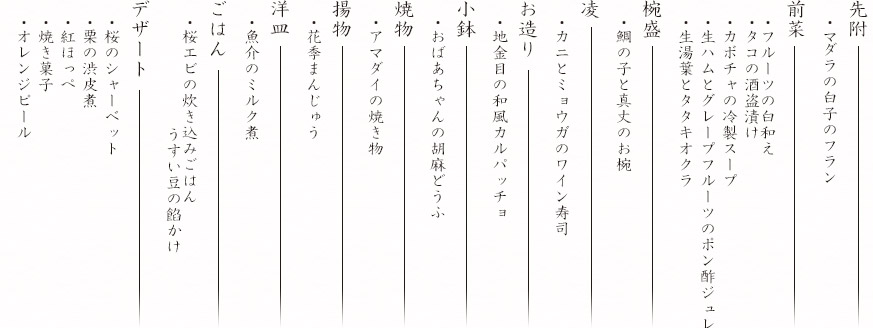 先附
・マダラの白子のフラン
前菜
・フルーツの白和え
・タコの酒盗漬け
・カボチャの冷製スープ
・生ハムとグレープフルーツのポン酢ジュレ
・生湯葉とタタキオクラ
椀盛
・鯛の子と真丈のお椀
凌
・カニとミョウガのワイン寿司
お造り
・地金目の和風カルパッチョ
小鉢
・おばあちゃんの胡麻どうふ
焼物
・アマダイの焼き物
揚物
・花季まんじゅう
洋皿
・魚介のミルク煮
ごはん
・桜エビの炊き込みごはん
うすい豆の餡かけ
デザート
・桜のシャーベット
・栗の渋皮煮
・紅ほっぺ
・焼き菓子
・オレンジピール